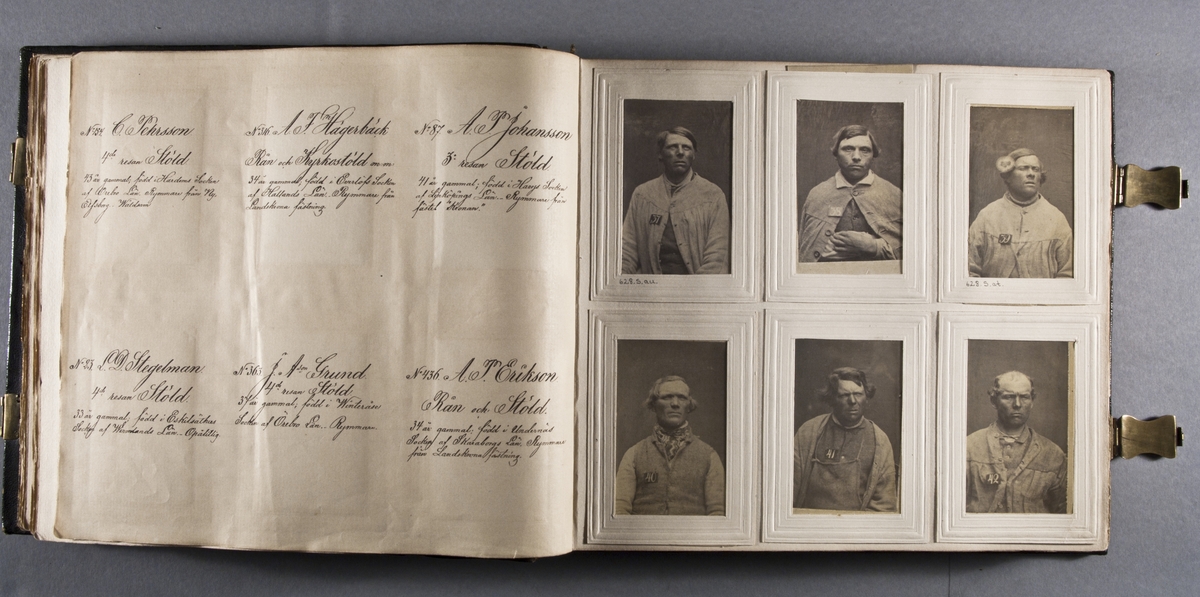 C. Pehrsson
4de resan Stöld
43 år gammal, född i Hardems Socken
af Örebro Län. Rymmare från Ny
Elfsborg.
No 316 A. F. Hägerbäck
Rån och Kyrkostöld m.m
34 år gammal, född i Öserlöfs Socken
af Hallands Län. Rymmare från
Landskrona fästning.
No 87 A. P. Johansson
3e resan Stöld
41 år gammal; född i Haurs Socken
af Jönköpings Län. Rymmare från
fästet "Kosnars".
No 23. D. Stegelman
4de resan Stöld.
33 år gammal, född i Eskilsäters
Socken af Wermlands Län. Opålitlig.
No 363 J. Grund
4de resan Stöld
37 år gammal; född i Winteråsa
Socken af Örebro Län. Rymmare.
No 436 A. P. Erikson
Rån och Stöld.
34 år gammal; född i Undernäs
Socken af Skaraborgs Län. Rymmare
från Landskrona fästning.
37
39
628. S. au.
628. S. at.
40
41
42